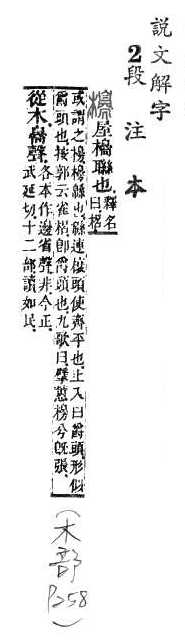 說文解字
2段注本
櫋屋櫋聯也.釋名
曰梠
或謂之櫋.櫋緜也.緜連榱頭使齊平也.上入曰爵頭形似
爵頭也.按郭云雀梠卽爵頭也.九歌曰.擘蕙櫋兮旣張.
從木.臱聲.各本作邊省聲.非.今正.
武延切十二部讀如民.
(木部 P258)